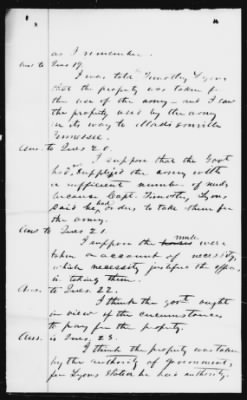 as I remember.
Ans to Ques 19.
I was told Timothy Lyons
that the property was taken for
the use of the army - and I saw
the property used by the army
on its way to Madisonville
Tennessee.
Ans. to Ques 20.
I suppose that the Govt
had supplied the army with
a sufficient number of mules
because Capt. Timothy Lyons
said he had orders to take them for
the army.
Ans to Ques 21.
I suppose the mules were
taken on account of necessity,
which necessity justifies the officer
in taking them.
Ans. to Ques 22.
I think the govt ought
in view of the circumstances
to pay for the property.
Ans. to Ques. 23.
I think the property was taken
by the authority of government,
for Lyons stated he had authority.